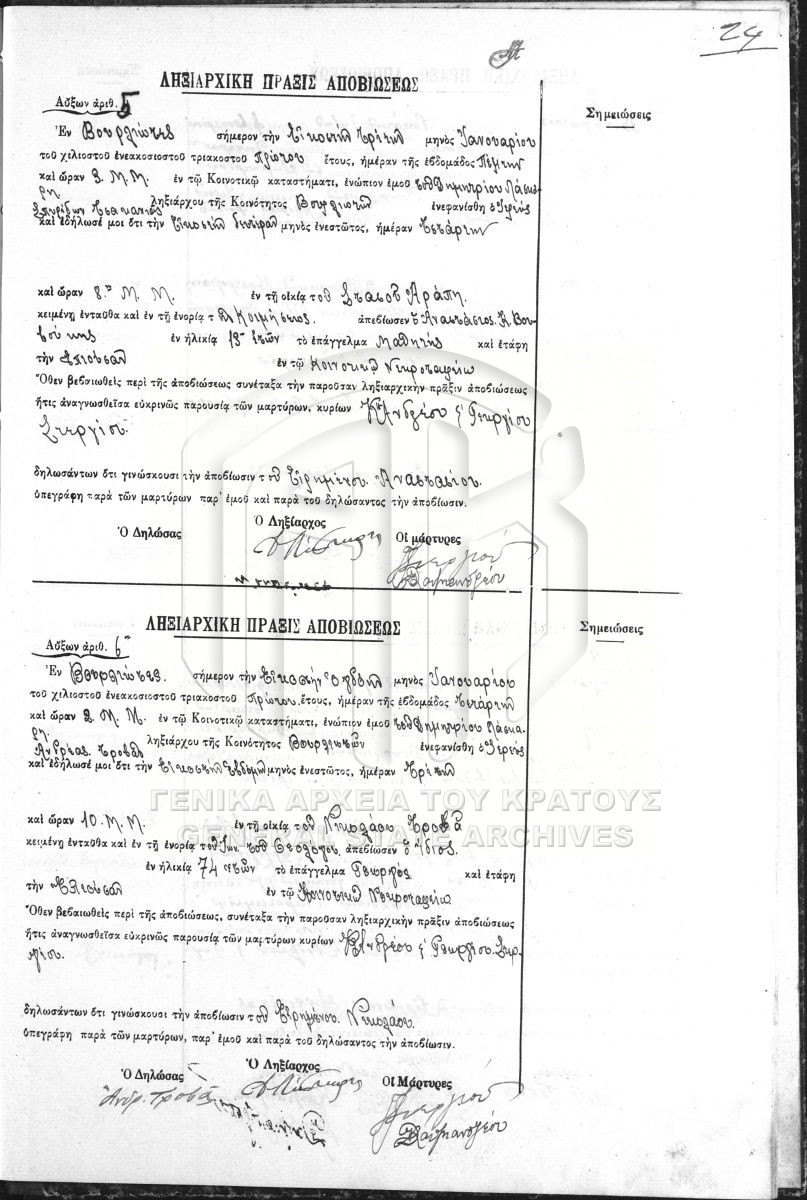 24
ΛΗΞΙΑΡΧΙΚΗ ΠΡΑΞΙΣ ΑΠΟΒΙΩΣΕΩΣ
Σημειώσεις
Αὔξων ἀριθ. 5
Ἐν Βουρλιώτες σήμερον τὴν Εἰκοστὴν τρίτην μηνὸς Ἰανουαρίου
τοῦ χιλιοστοῦ ἐνεακοσιοστοῦ τριακοστοῦ Πρώτου ἔτους, ἡμέραν τῆς ἑβδομάδος Πέμτην
καὶ ὥραν 3 Μ. Μ. ἐν τῷ Κοινοτικῷ καταστήματι, ἐνώπιον ἐμοῦ τοῦ Δημητρίου Λάσκα-
ρη. ληξιάρχου τῆς Κοινότητος Βουρλιωτῶν ἐνεφανίσθη ὁ Ἱερεὺς
Σπυρίδων
καὶ ἐδήλωσέ μοι ὅτι τὴν Εἰκοστὴν δευτέραν μηνὸς ἐνεστῶτος, ἡμέραν Τετάρτην
καὶ ὥραν 8 Π. Μ. ἐν τῇ οἰκίᾳ τοῦ Σταθοῦ Ἀράπη.
κειμένῃ ἐνταῦθα καὶ ἐν τῇ ἐνορίᾳ τῆς Κοιμήσεως. ἀπεβίωσεν ὁ Ἀναστάσιος. Κ.
ἐν ἡλικίᾳ 18 ἐτῶν τὸ ἐπάγγελμα Μαθητὴς καὶ ἐτάφη
τὴν Ἐπιοῦσαν ἐν τῷ Κοινοτικῷ Νεκροταφείῳ
Ὅθεν βεβαιωθεὶς περὶ τῆς ἀποβιώσεως συνέταξα τὴν παροῦσαν ληξιαρχικὴν πρᾶξιν ἀποβιώσεως
ἥτις ἀναγνωσθεῖσα εὐκρινῶς παρουσίᾳ τῶν μαρτύρων, κυρίων Κ. Ἀνδρέου ἐ Γεωργίου
Στεργίου.
δηλωσάντων ὅτι γινώσκουσι τὴν ἀποβίωσιν τοῦ Εἰρημένου. Ἀναστασίου.
ὑπεγράφη παρὰ τῶν μαρτύρων παρ' ἐμοῦ καὶ παρὰ τοῦ δηλώσαντος τὴν ἀποβίωσιν.
Ὁ Δηλώσας Ὁ Ληξίαρχος Οἱ μάρτυρες
ΛΗΞΙΑΡΧΙΚΗ ΠΡΑΞΙΣ ΑΠΟΒΙΩΣΕΩΣ
Σημειώσεις
Αὔξων ἀριθ. 6
Ἐν Βουρλιώτες. σήμερον τὴν Εἰκοστὴν Ὀγδόην μηνὸς Ἰανουαρίου
τοῦ χιλιοστοῦ ἐνεακοσιοστοῦ τριακοστοῦ Πρώτου. ἔτους, ἡμέραν τῆς ἑβδομάδος Τετάρτην
καὶ ὥραν 3 Μ. Μ. ἐν τῷ Κοινοτικῷ καταστήματι, ἐνώπιον ἐμοῦ τοῦ Δημητρίου Λάσκα-
ρη. ληξιάρχου τῆς Κοινότητος Βουρλιωτῶν ἐνεφανίσθη ὁ Ἱερεὺς
Ἀνδρέας Τροβᾶς
καὶ ἐδήλωσέ μοι ὅτι τὴν Εἰκοστὴν Ἑβδόμην μηνὸς ἐνεστῶτος, ἡμέραν Τρίτην
καὶ ὥραν 10. Μ. Μ. ἐν τῇ οἰκίᾳ τοῦ Νικολάου Τροβᾶ
ΓΕΝΙΚΑ ΑΡΧΕΙΑ ΤΟΥ ΚΡΑΤΟΥΣ
GENERAL STATE ARCHIVES
κειμένῃ ἐνταῦθα καὶ ἐν τῇ ἐνορίᾳ τοῦ Ἰωαν. τοῦ Θεολόγου. ἀπεβίωσεν ὁ Ἴδιος.
ἐν ἡλικίᾳ 74 ἐτῶν τὸ ἐπάγγελμα Γεωργὸς καὶ ἐτάφη
τὴν Ἐπιοῦσαν ἐν τῷ Κοινοτικῷ Νεκροταφείῳ
Ὅθεν βεβαιωθεὶς περὶ τῆς ἀποβιώσεως, συνέταξα τὴν παροῦσαν ληξιαρχικὴν πρᾶξιν ἀποβιώσεως
ἥτις ἀναγνωσθεῖσα εὐκρινῶς παρουσίᾳ τῶν μαρτύρων κυρίων Κ. Ἀνδρέου ἐ Γεωργίου. Στερ-
γίου.
δηλωσάντων ὅτι γινώσκουσι τὴν ἀποβίωσιν τοῦ Εἰρημένου. Νικολάου.
ὑπεγράφη παρὰ τῶν μαρτύρων, παρ' ἐμοῦ καὶ παρὰ τοῦ δηλώσαντος τὴν ἀποβίωσιν.
Ὁ Δηλώσας Ὁ Ληξίαρχος Οἱ Μάρτυρες
Ἀνδρ. Τροβᾶς